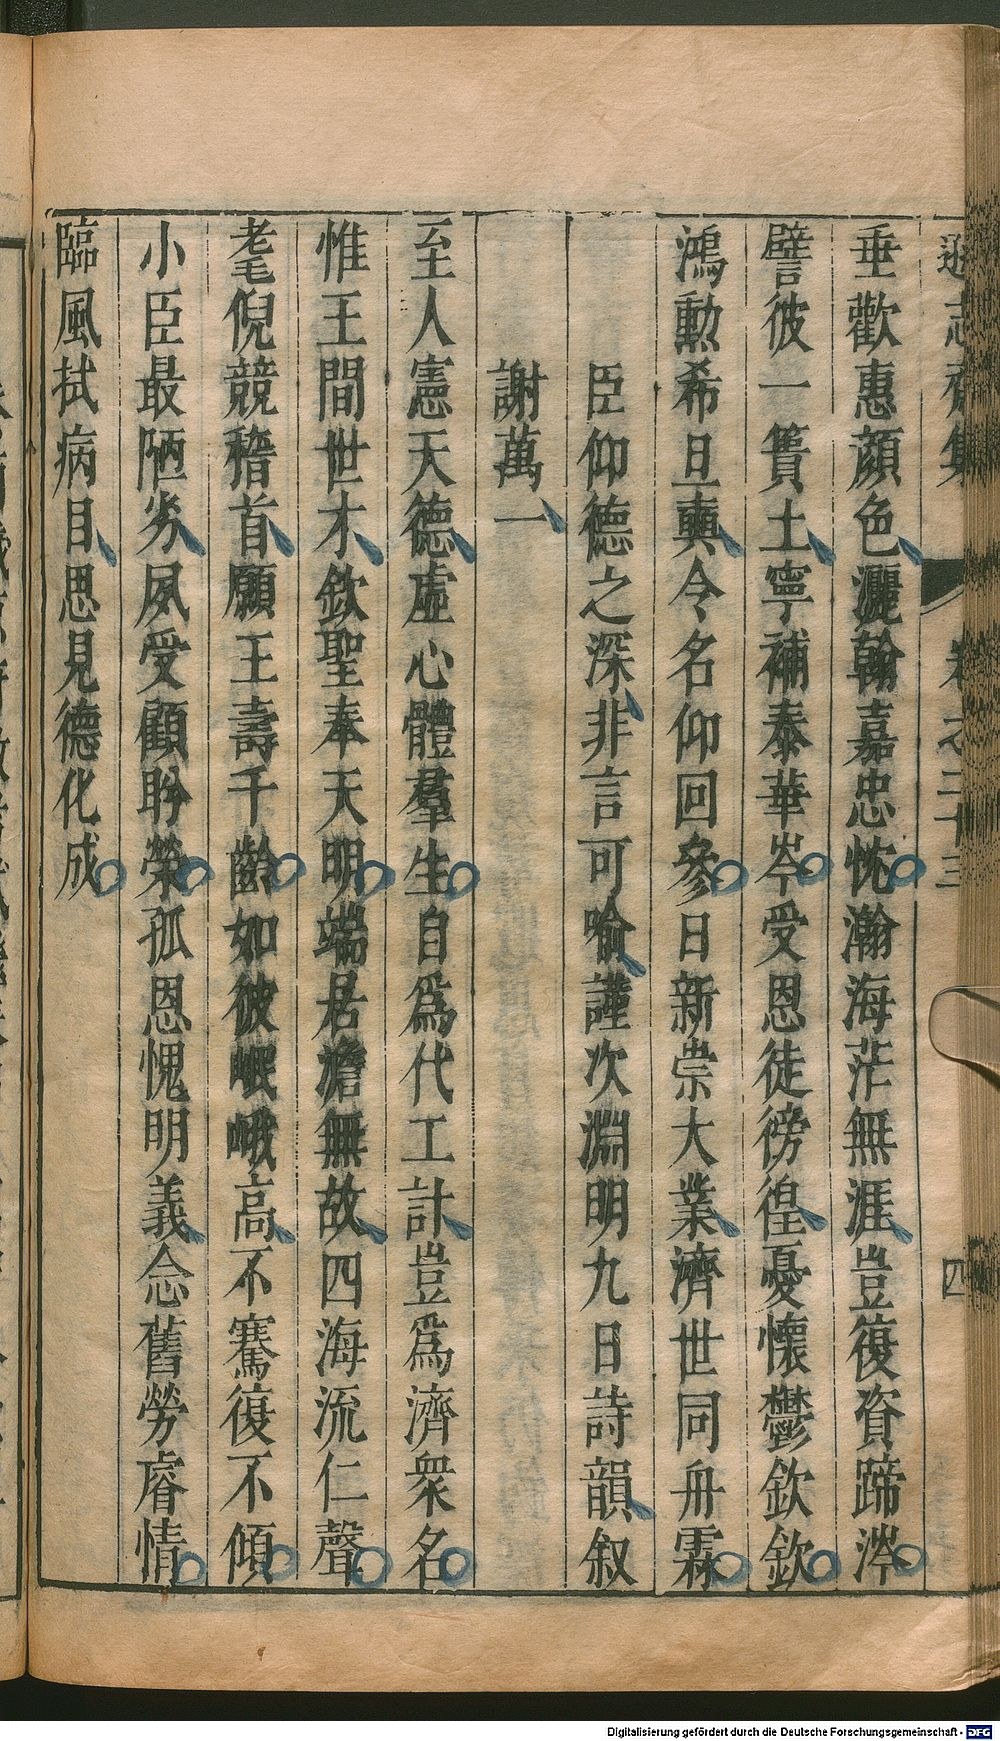 遜志齋集 卷之二十三 四
垂歡惠顔色灑翰嘉忠忱瀚海茫無涯豈復資蹄涔
譬彼一簣土寧補泰華岑受恩徒徬徨憂懷鬱欽欽
鴻勲希旦奭令名仰回參日新崇大業濟世同舟霖
臣仰德之深非言可喻謹次淵明九日詩韻叙
謝萬一
至人憲天德虛心體羣生自爲代工計豈爲濟衆名
惟王間世才欽聖奉天明端居澹無故四海流仁聲
耄倪競稽首願王壽千齡如彼岷峨高不騫復不傾
小臣最陋劣夙受顧盼榮孤恩愧明義念舊勞睿情
臨風拭病目思見德化成
Digitalisierung gefördert durch die Deutsche Forschungsgemeinschaft - DFG